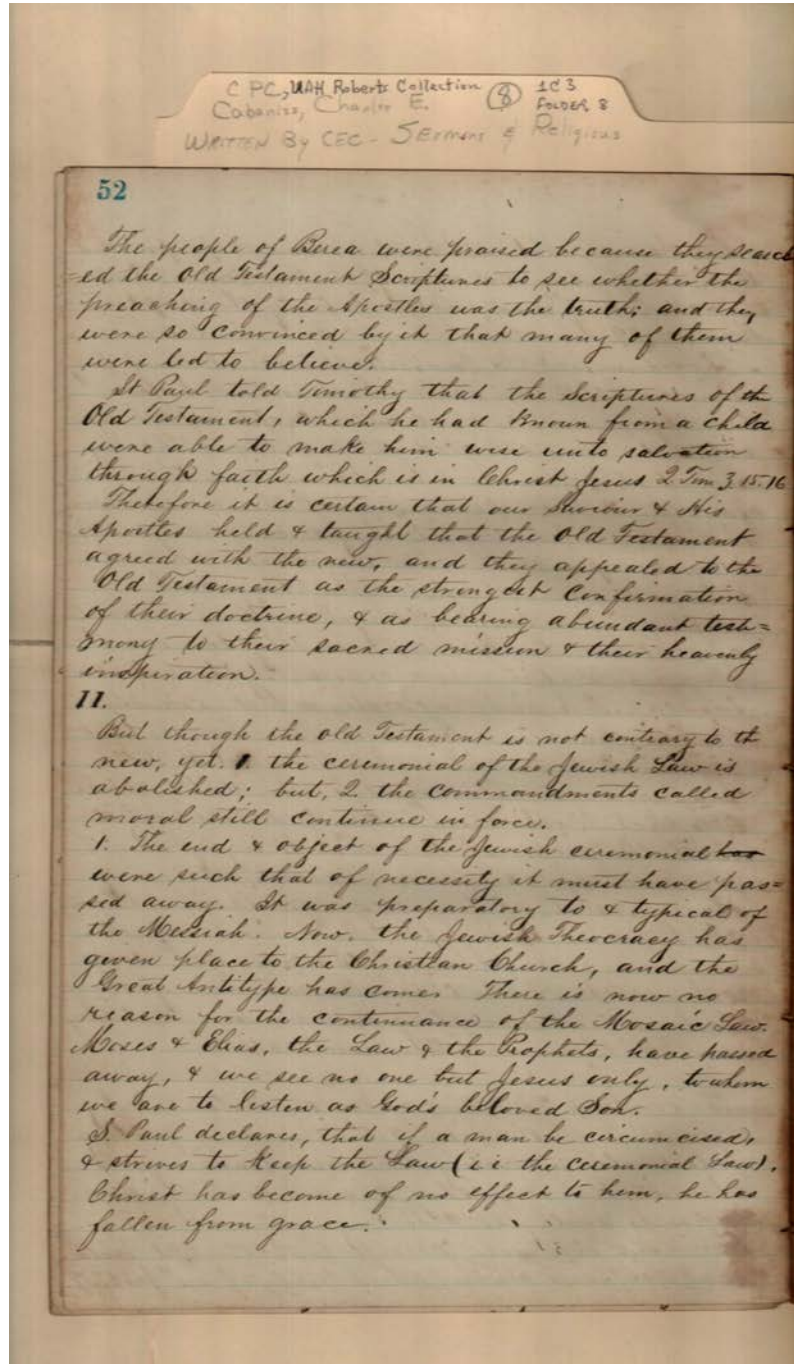 C PC, UAH Roberts Collection (8) 1C3
Cabaniss, Charles E. FOLDER 8
WRITTEN By CEC - SERMONS & Religious
52
The people of Berea were praised because they search
=ed the Old Testament Scriptures to see whether the
preaching of the Apostles was the truth; and they
were so convinced by it that many of them
were led to believe.
St Paul told Timothy that the Scriptures of the
Old Testament, which he had known from a child
were able to make him wise unto salvation
through faith which is in Christ Jesus 2 Tim 3.15.16
Therefore it is certain that our Saviour & His
Apostles held & taught that the Old Testament
agreed with the new, and they appealed to the
Old Testament as the strongest Confirmation
of their doctrine, & as bearing abundant testi=
mony to their sacred mission & their heavenly
inspiration.
11.
But though the old Testament is not contrary to th
new, yet. 1. the ceremonial of the Jewish Law is
abolished; but, 2. the commandments called
moral still continue in force.
1. The end & object of the Jewish ceremonial has
were such that of necessity it must have pas=
sed away. It was preparatory to & typical of
the Messiah. Now. the Jewish Theocracy has
given place to the Christian Church, and the
Great Antitype has come. There is now no
reason for the continuance of the Mosaic Law.
Moses & Elias, the Law & the Prophets, have passed
away, & we see no one but Jesus only, to whom
we are to listen as God's beloved Son.
S. Paul declares, that if a man be circumcised,
& strives to keep the Law (i e the ceremonial Law),
Christ has become of no effect to him, he has
fallen from grace.